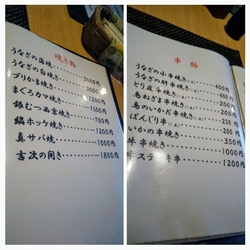 焼き物
うなぎの蒲焼……3000円
うなぎの白焼……3000円
ブリかま焼き……
まぐろカマ焼き……1200円
銀むつ西京焼……700円
縞ホッケ焼き……1200円
真サバ焼……1000円
吉次の開き……1800円
串物
うなぎの小串焼き……600円
うなぎの肝串焼き……400円
とり皮串焼き
鳥ねぎま串焼き
鳥のいかだ串焼き……250円
ぼんじり串……200円
いかの串焼き……350円
牛串焼き……1000円
牛ステーキ串……1200円